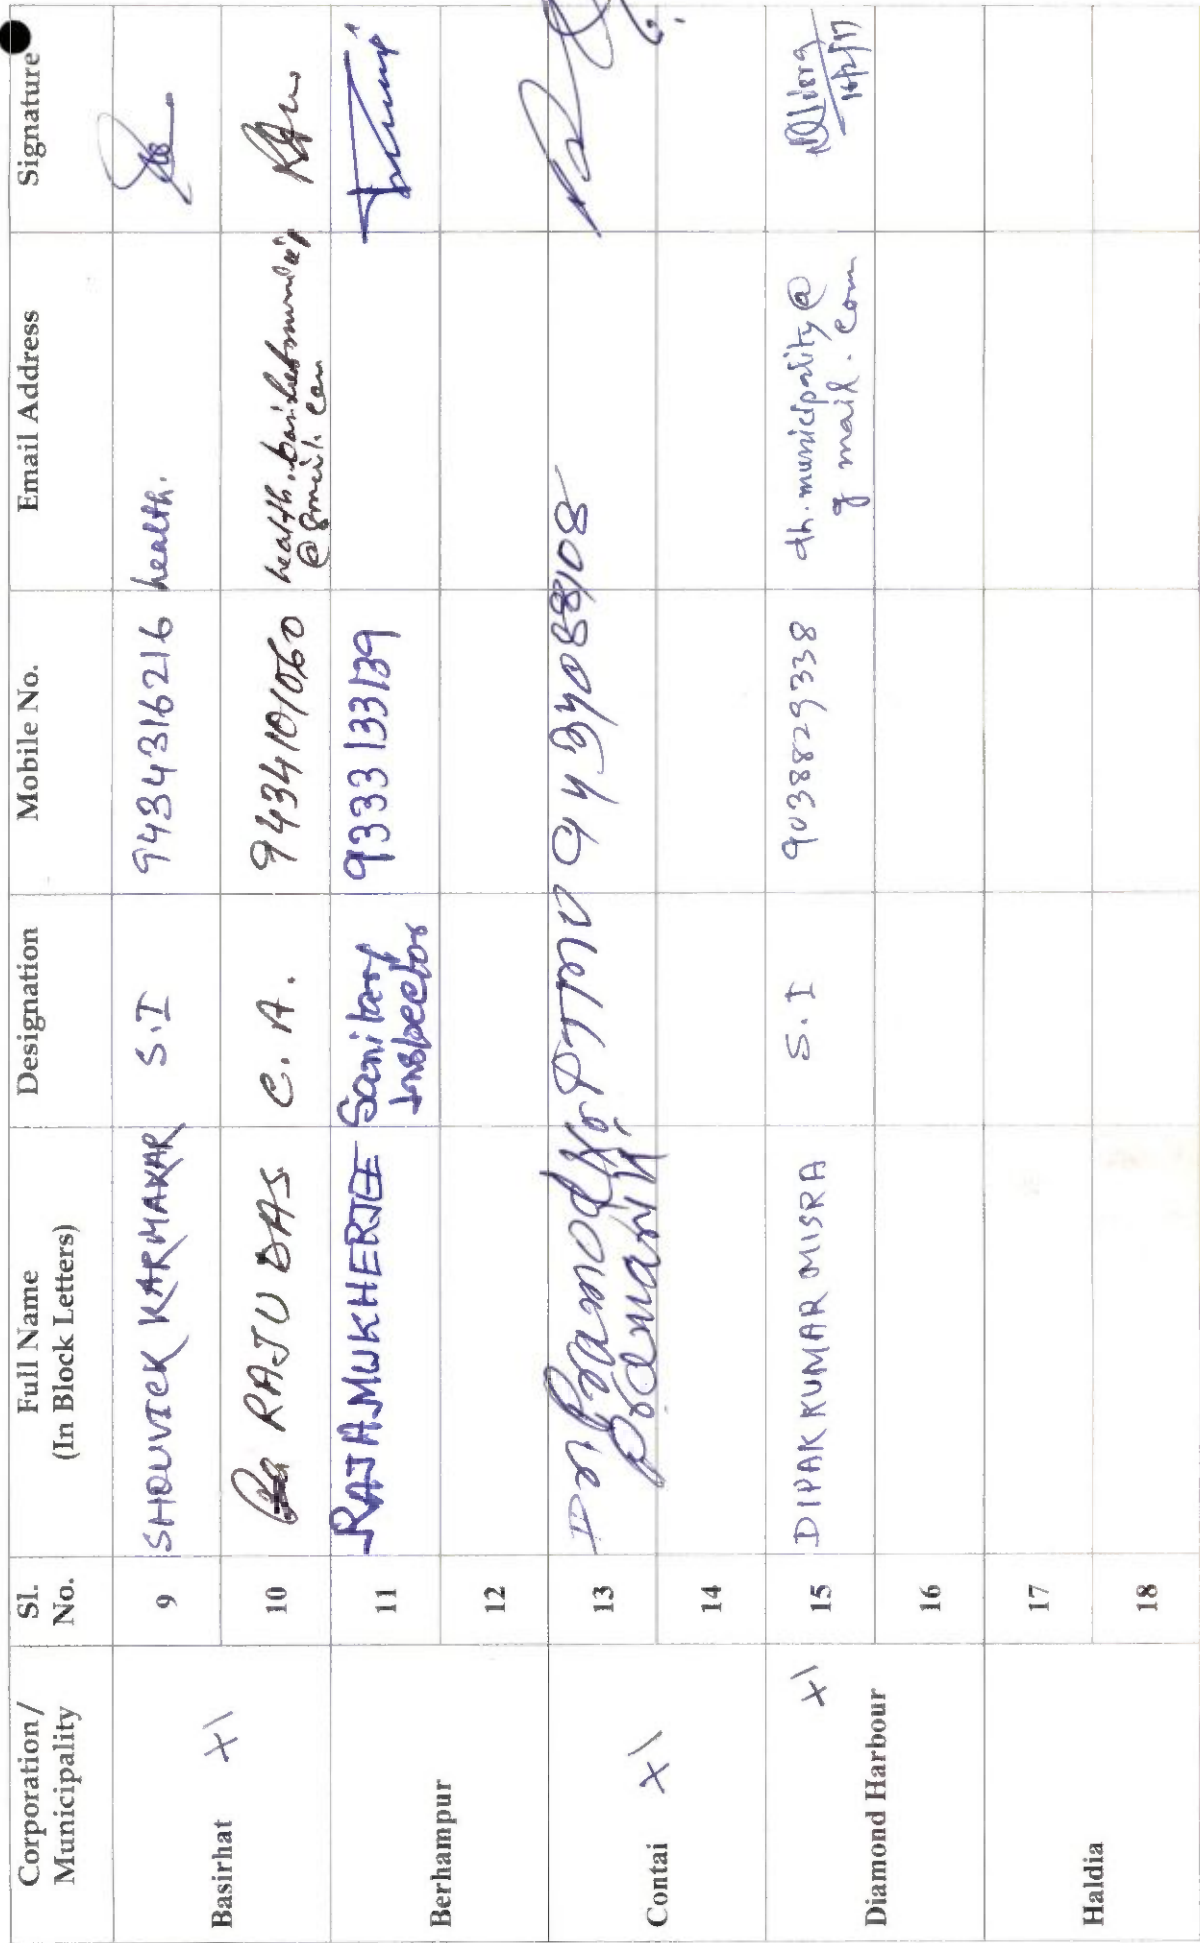 Corporation/ Municipality Sl. No. Full Name (In Block Letters) Designation Mobile No. Email Address Signature
Basirhat X\
9 SHOUVICK KARMAKAR S.I 9434316216 health.
10 RAJU DAS C. A. 9434101060 health.
@gmail.com
Berhampur
11 RAJA MUKHERJEE Sanitary Inspector 9333133139
12
Contai X\
13 Pramanik
14
Diamond Harbour X\
15 DIPAK KUMAR MISRA S.I 9038829338 dh.municipality@
gmail.com
16/2/17
16
Haldia
17
18